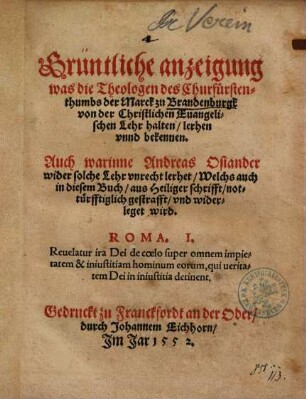 Gründtliche anzeigung
was die Theologen des Churfürsten-
thumbs der Marck zu Brandenburgk
von der Christlichen Euangeli-
schen Lehr halten / lerhen
vnnd bekennen.
Auch warinne Andreas Osiander
wider solche Lehr vnrecht lerhet / Welchs auch
in diesem Buch / aus Heiliger schrifft / not-
türfftiglich gestrafft / vnd wider-
leget wird.
ROMA. I.
Reuelatur ira Dei de cœlo super omnem impie-
tatem & iniustitiam hominum eorum, qui verita-
tem Dei in iniustitia detinent.
Gedruckt zu Franckfordt an der Oder /
durch Johannem Eichhorn /
Im Jar 1552.